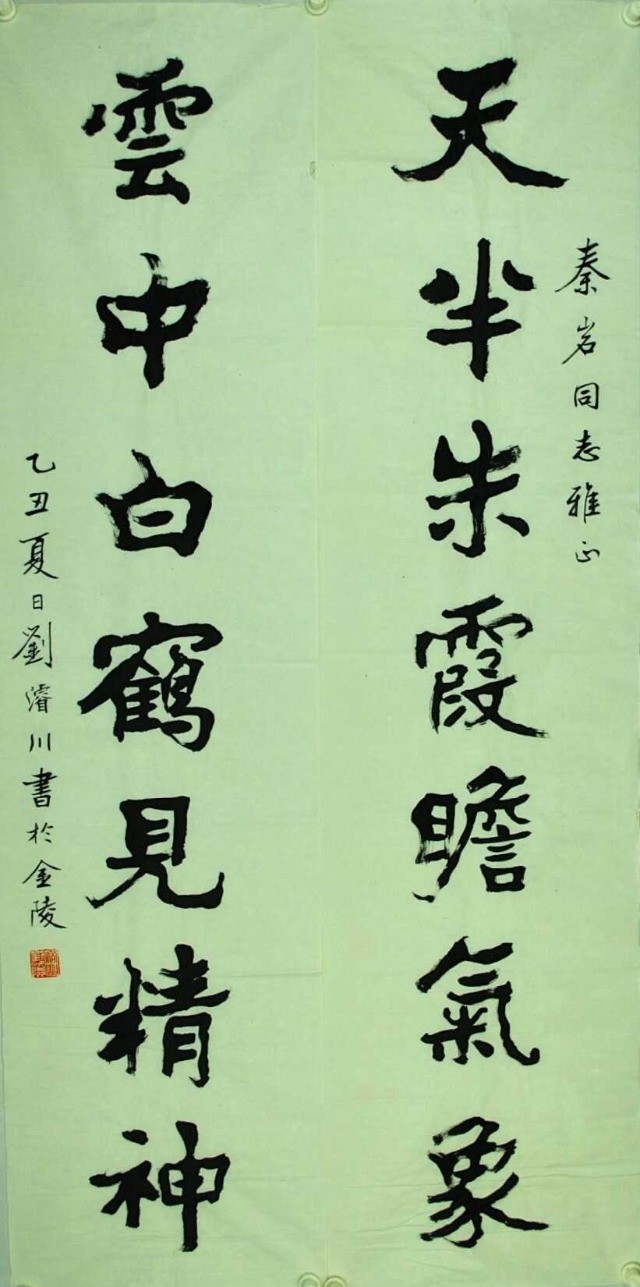 秦岩同志雅正
天半朱霞瞻氣象
雲中白鶴見精神
乙丑夏日劉濬川書於金陵